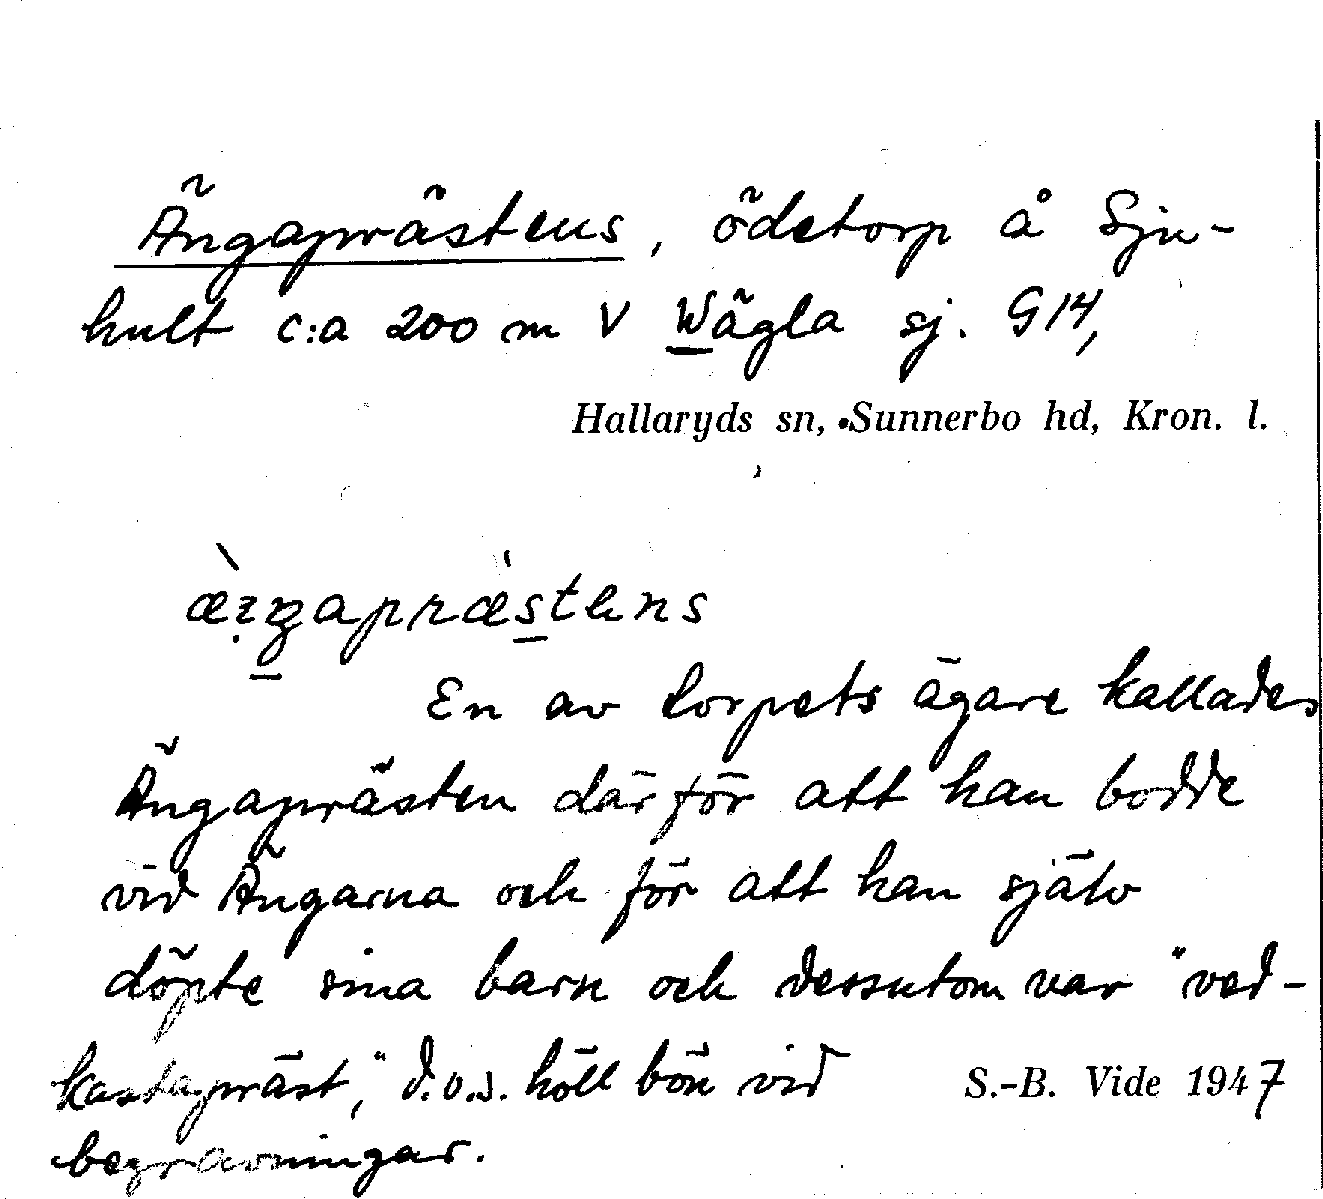 Ängaprästens, ödetorp å Sju-
hult c:a 200 m V Wägla sj. G14,
Hallaryds sn, Sunnerbo hd, Kron. l.
En av torpets ägare kallades
Ängaprästen därför att han bodde
vid Ängarna och för att han själv
döpte sina barn och dessutom var "ved-
kastapräst", d.v.s. höll bön vid
S.-B. Vide 1947
begravningar.